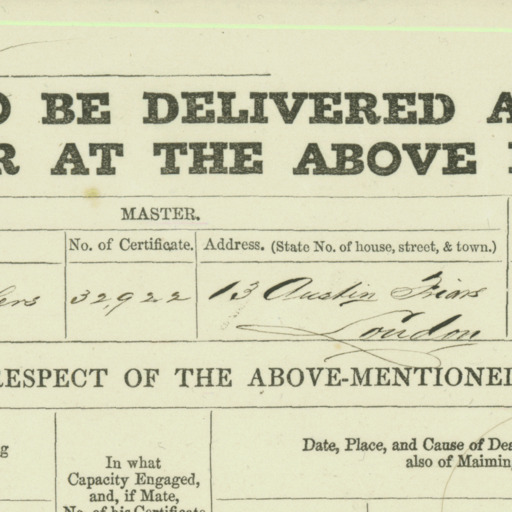 O BE DELIVERED A
R AT THE ABOVE
MASTER.
No. of Certificate. Address. (State No. of house, street, & town.)
32,922 13 Austin Friars
London
RESPECT OF THE ABOVE-MENTIONED
In what
Capacity Engaged,
and, if Mate,
No. of his Certificate
Date, Place, and Cause of Dea
also of Maiming